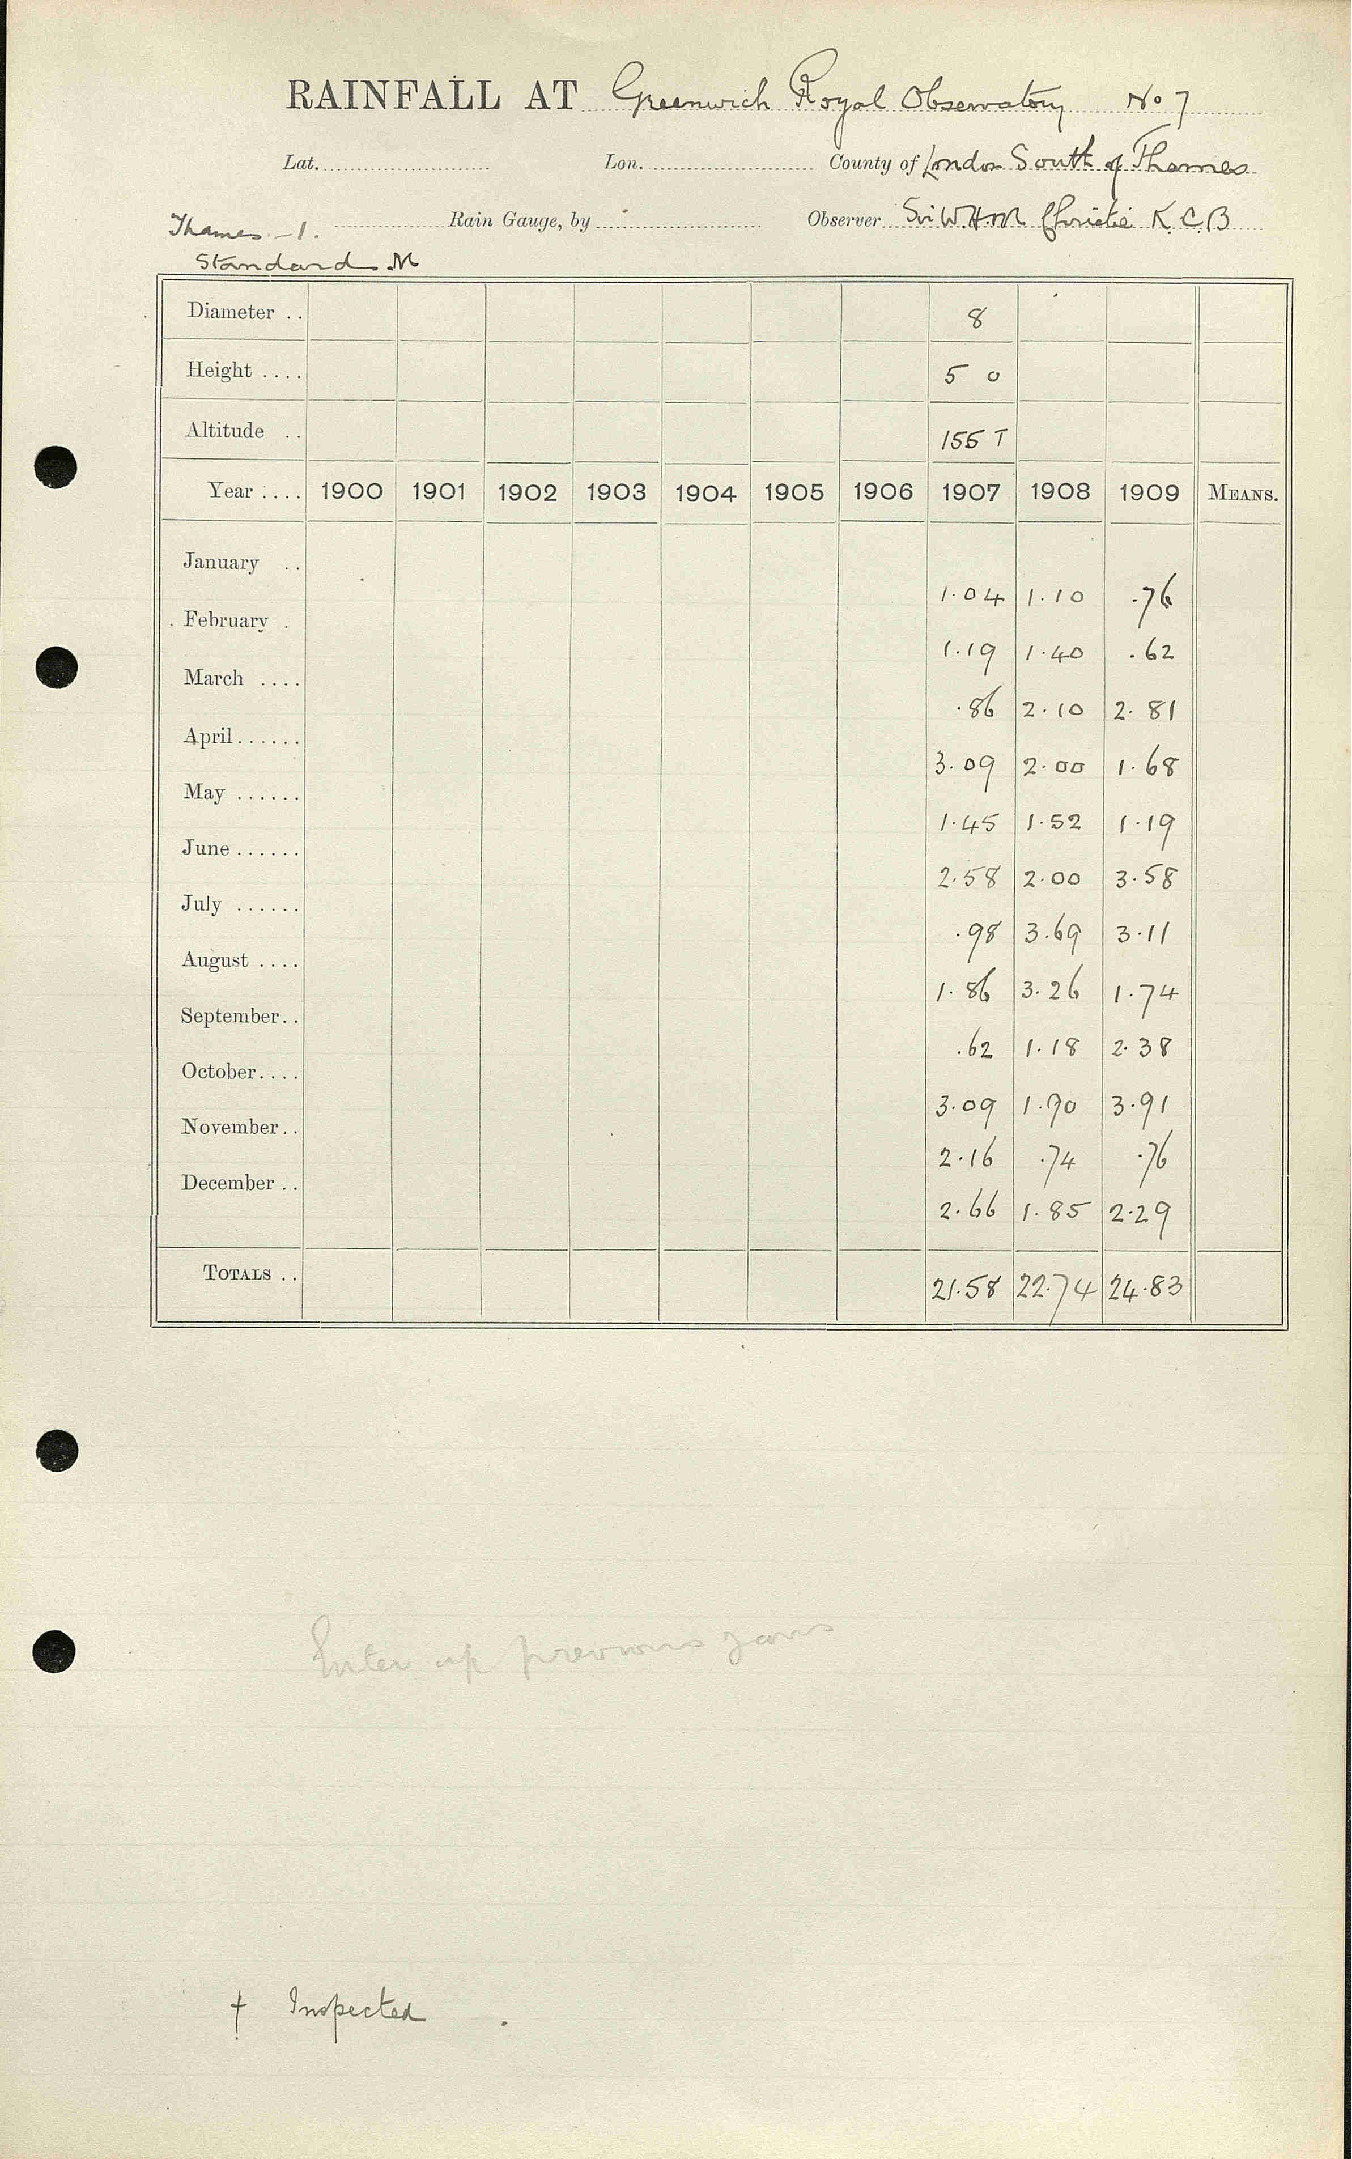 RAINFALL AT Greenwich Royal Observatory No 7
Lat. Lon. County of London South of Thames
Thames - 1. Rain Gauge, by Observer Sir W.H.M Christie K.C.B
Standard M
Diameter .. 8
Height .... 5 0
Altitude .. 155 T
Year .... 1900 1901 1902 1903 1904 1905 1906 1907 1908 1909 MEANS.
January .. 1.04 1.10 .76
February . 1.19 1.40 .62
March .... .86 2.10 2.81
April...... 3.09 2.00 1.68
May ...... 1.45 1.52 1.19
June ...... 2.58 2.00 3.58
July ...... .98 3.69 3.11
August .... 1.86 3.26 1.74
September.. .62 1.18 2.38
October.... 3.09 1.90 3.91
November.. 2.16 .74 .76
December .. 2.66 1.85 2.29
TOTALS .. 21.58 22.74 24.83
Enter up previous years
† Inspected